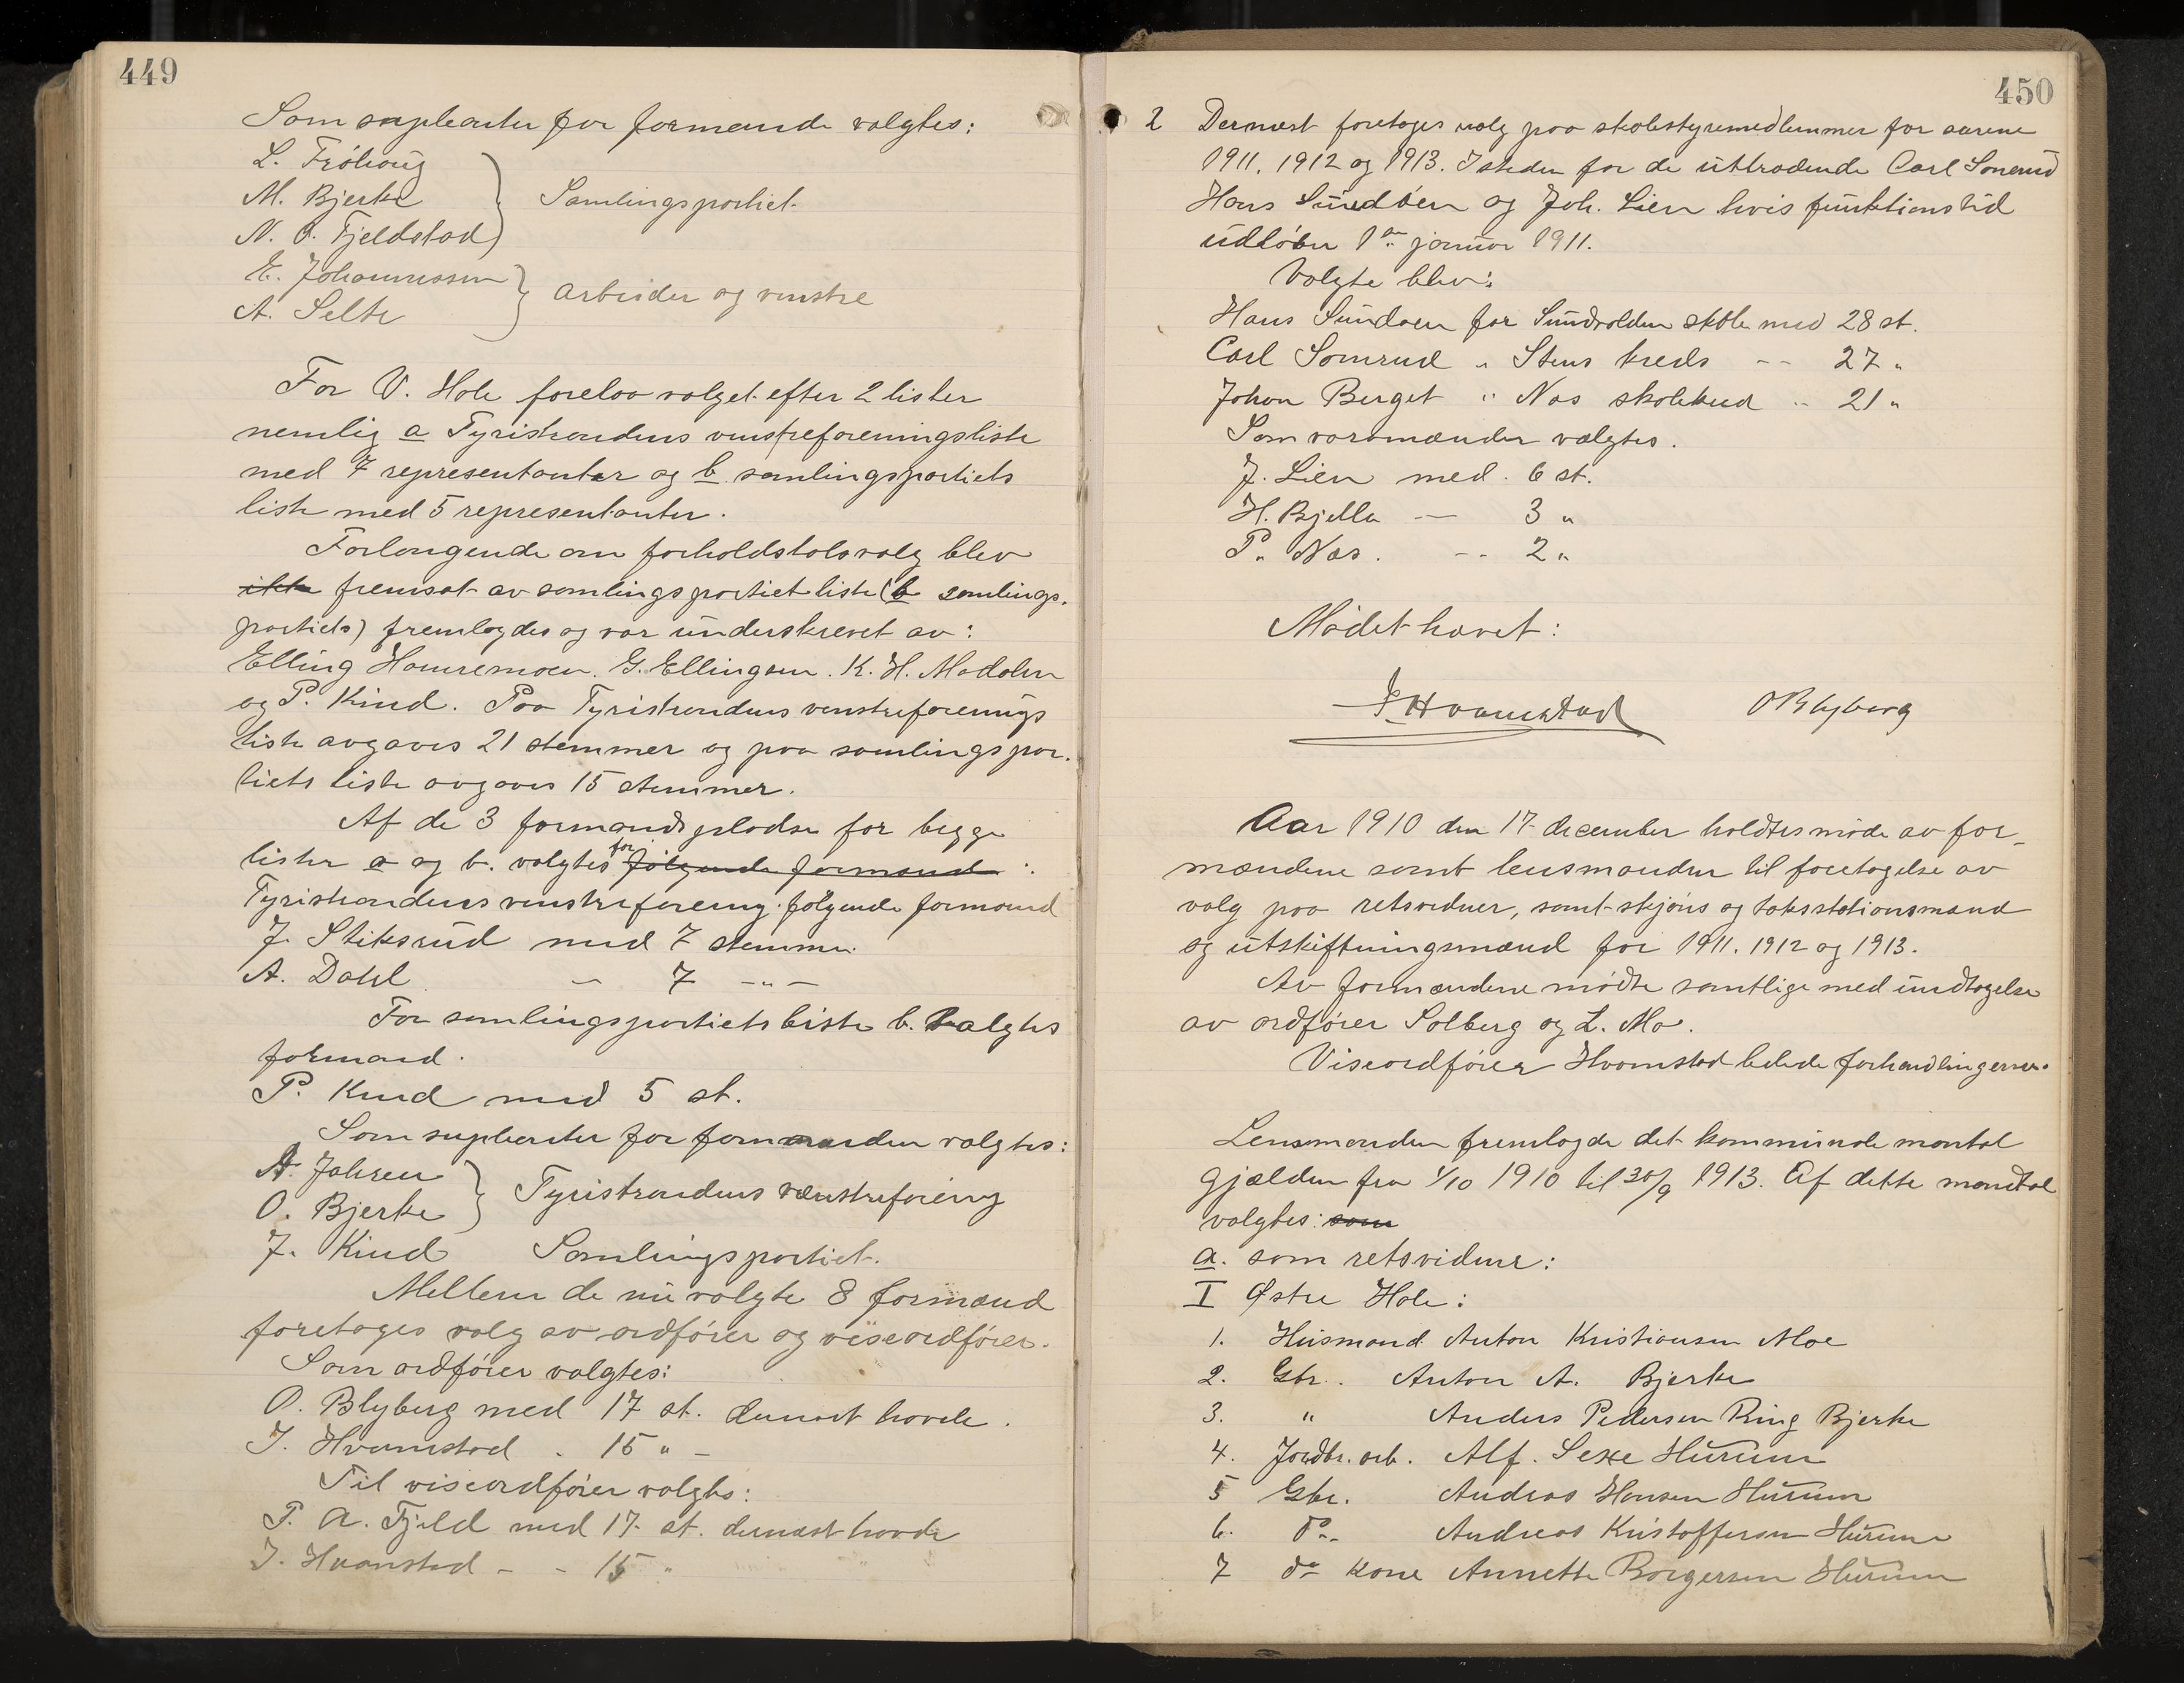 449
Som supleanter for formænde valgtes:
L. Fröhoug
M. Bjerke } Samlingspartiet
N. O. Fjeldstad
E. Johannessen
A. Selte } arbeider og venstre
For V. Hole forelaa valget efter 2 lister
nemlig a Tyristrandens venstreforeningsliste
med 7 representanter og b samlingspartiets
liste med 5 representanter.
Forlangende om forholdstalsvalg blev
ikke fremsat av samlingspartiet liste (b samlings-
partiets) fremlagdes og var underskrevet av:
Elling Hamremoen. G. Ellingsen. K. H. Modalen
og P. Kind. Paa Tyristrandens venstreforenings
liste avgaves 21 stemmer og paa samlingspar-
tiets liste avgaves 15 stemmer.
Af de 3 formandspladse for begge
lister a og b. valgtes for følgende formænd :
Tyristrandens venstreforening følgende formænd
J. Stiksrud med 7 stemmer
A. Dahl — 7 —"—
For samlingspartiets liste b. valgtes
formand.
P. Kind med 5 st.
Som supleanter for formænden valgtes:
A. Johsen
O. Bjerke } Tyristrandens vænstreforening
J. Kind Samlingspartiet.
Mellem de nu valgte 8 formænd
foretages valg av ordfører og viseordfører.
Som ordfører valgtes:
O. Blyberg med 17 st. dernæst havde.
I. Hvamstad - 15 " -
Til viseordfører valgtes:
P. A. Fjeld med 17 st. dernæst havde
I. Hvamstad - - 15 "
450
2 Dernæst foretoges valg paa skolestyremedlemmer for aarene
1911, 1912 og 1913. Isteden for de uttrædende Carl Sonerud
Hans Sundøen og Joh. Lien hvis funktionstid
udløber 1ste januar 1911.
Valgte blev:
Hans Sundøen for Sundvolden skole med 28 st.
Carl Somrud " Stens kreds -- 27 "
Johan Berget " Nas skolekred -- 21 "
Som varamænder valgtes.
J. Lien med 6 st.
H. Bjella — 3 "
P. Næs. -- 2 "
Mødet hævet:
I Hvamstad O Blyberg
Aar 1910 den 17 december holdtes møde av for-
mændene samt lensmanden til foretagelse av
valg paa retsvidner, samt skjøns og takstationsmænd
og utskiftningsmænd for 1911. 1912 og 1913.
Av formændene mødte samtlige med undtagelse
av ordfører Solberg og L. Mo.
Viseordfører Hvamstad ledede forhandlingerne.
Lensmanden fremlagde det kommunale mantal
gjælden fra 1/10 1910 til 30/9 1913. Af dette mandtal
valgtes: som
a. som retsvidner:
I Østre Hole:
1. Husmand Anton Kristiansen Moe
2. Gbr. Anton A. Bjerke
3. " Anders Pedersen Ring Bjerke
4. Jordbr. arb. Alf. Sexe Hurum
5 Gbr. Andreas Hansen Hurum
6. Do. Andreas Kristoffersen Hurum
7 do kone Annette Borgersen Hurum